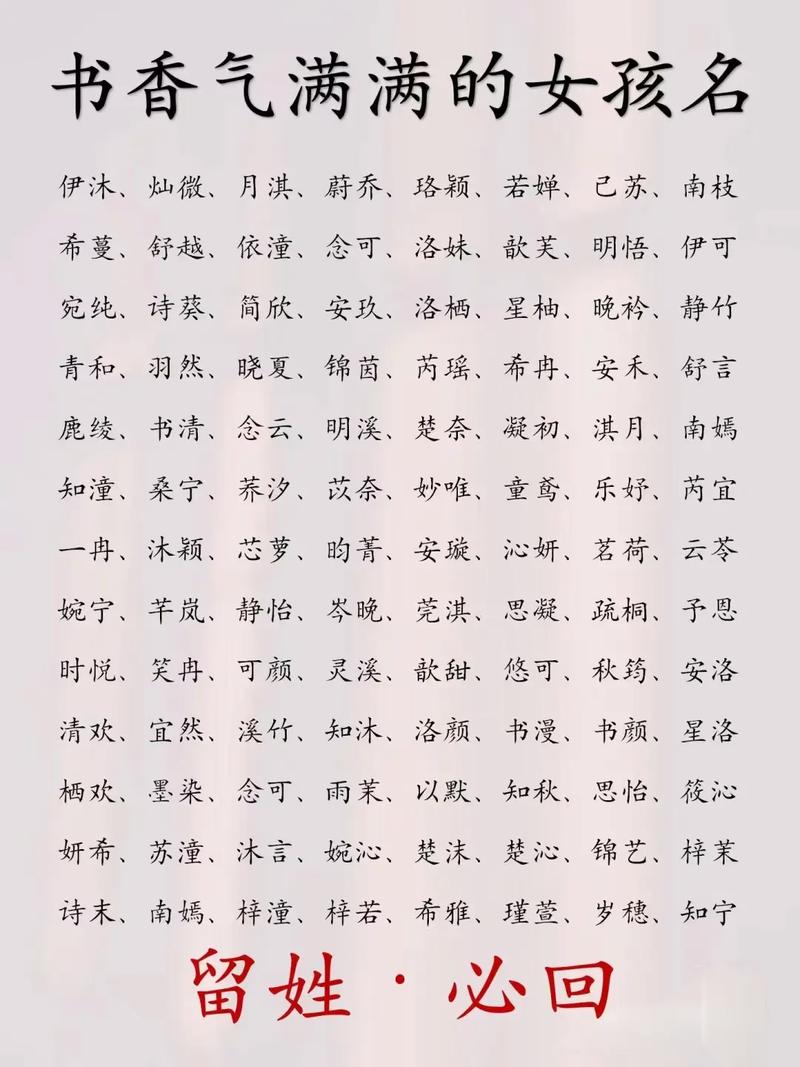 书香气满满的女孩名
伊沐、灿微、月淇、蔚乔、珞颖、若婵、己苏、南枝
希蔓、舒越、依潼、念可、洛妹、歆芙、明悟、伊可
宛纯、诗葵、简欣、安玖、洛栖、星柚、晚衿、静竹
青和、羽然、晓夏、锦茵、芮瑶、希冉、安禾、舒言
鹿绫、书清、念云、明溪、楚奈、凝初、淇月、南嫣
知潼、桑宁、荞汐、苡奈、妙唯、童鸢、乐妤、芮宜
一冉、沐颖、芯萝、昀菁、安璇、沁妍、茗荷、云苓
婉宁、芊岚、静怡、岑晚、莞淇、思凝、疏桐、予恩
时悦、笑冉、可颜、灵溪、歆甜、悠可、秋筠、安洛
清欢、宜然、溪竹、知沐、洛颜、书漫、书颜、星洛
栖欢、墨染、念可、雨茉、以默、知秋、思怡、筱沁
妍希、苏潼、沐言、婉沁、楚沫、楚沁、锦艺、梓茉
诗末、南嫣、梓潼、梓若、希雅、瑾萱、岁穗、知宁
留姓·必回